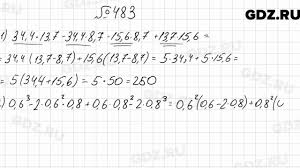 № 483
GDZ.RU
1) 34,4·13,7 - 34,4·8,7 - 15,6·8,7 + 13,7·15,6 =
= 34,4 (13,7-8,7) + 15,6 (13,7-8,7) = 5·34,4 + 5·15,6 =
= 5 (34,4 + 15,6) = 5·50 = 250
) 0,6³-2·0,6²·0,8 + 0,6·0,8²-2·0,8³ = 0,6²(0,6-2·0,8) + 0,8²(
GDZ.RU